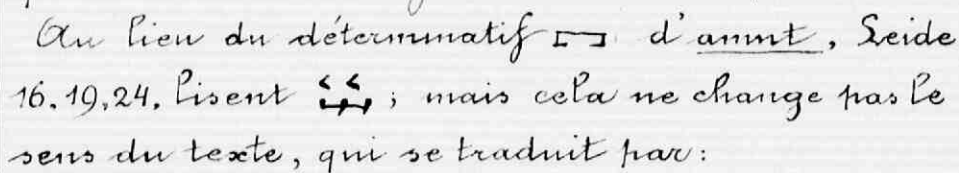 Au lieu du déterminatif 𓉐 d'amnt, Leide
16.19,24. lisent ; mais cela ne change pas le
sens du texte, qui se traduit par: